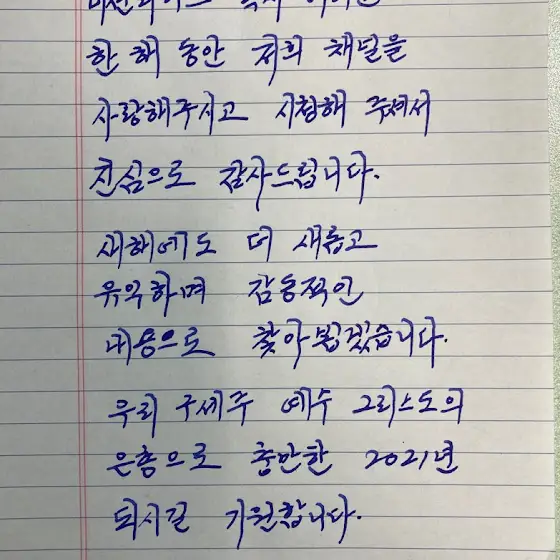 한 해 동안 저희 채널을
사랑해주시고 시청해 주셔서
진심으로 감사드립니다.
새해에도 더 새롭고
유익하며 감동적인
내용으로 찾아뵙겠습니다.
우리 구세주 예수 그리스도의
은총으로 충만한 2021년
되시길 기원합니다.